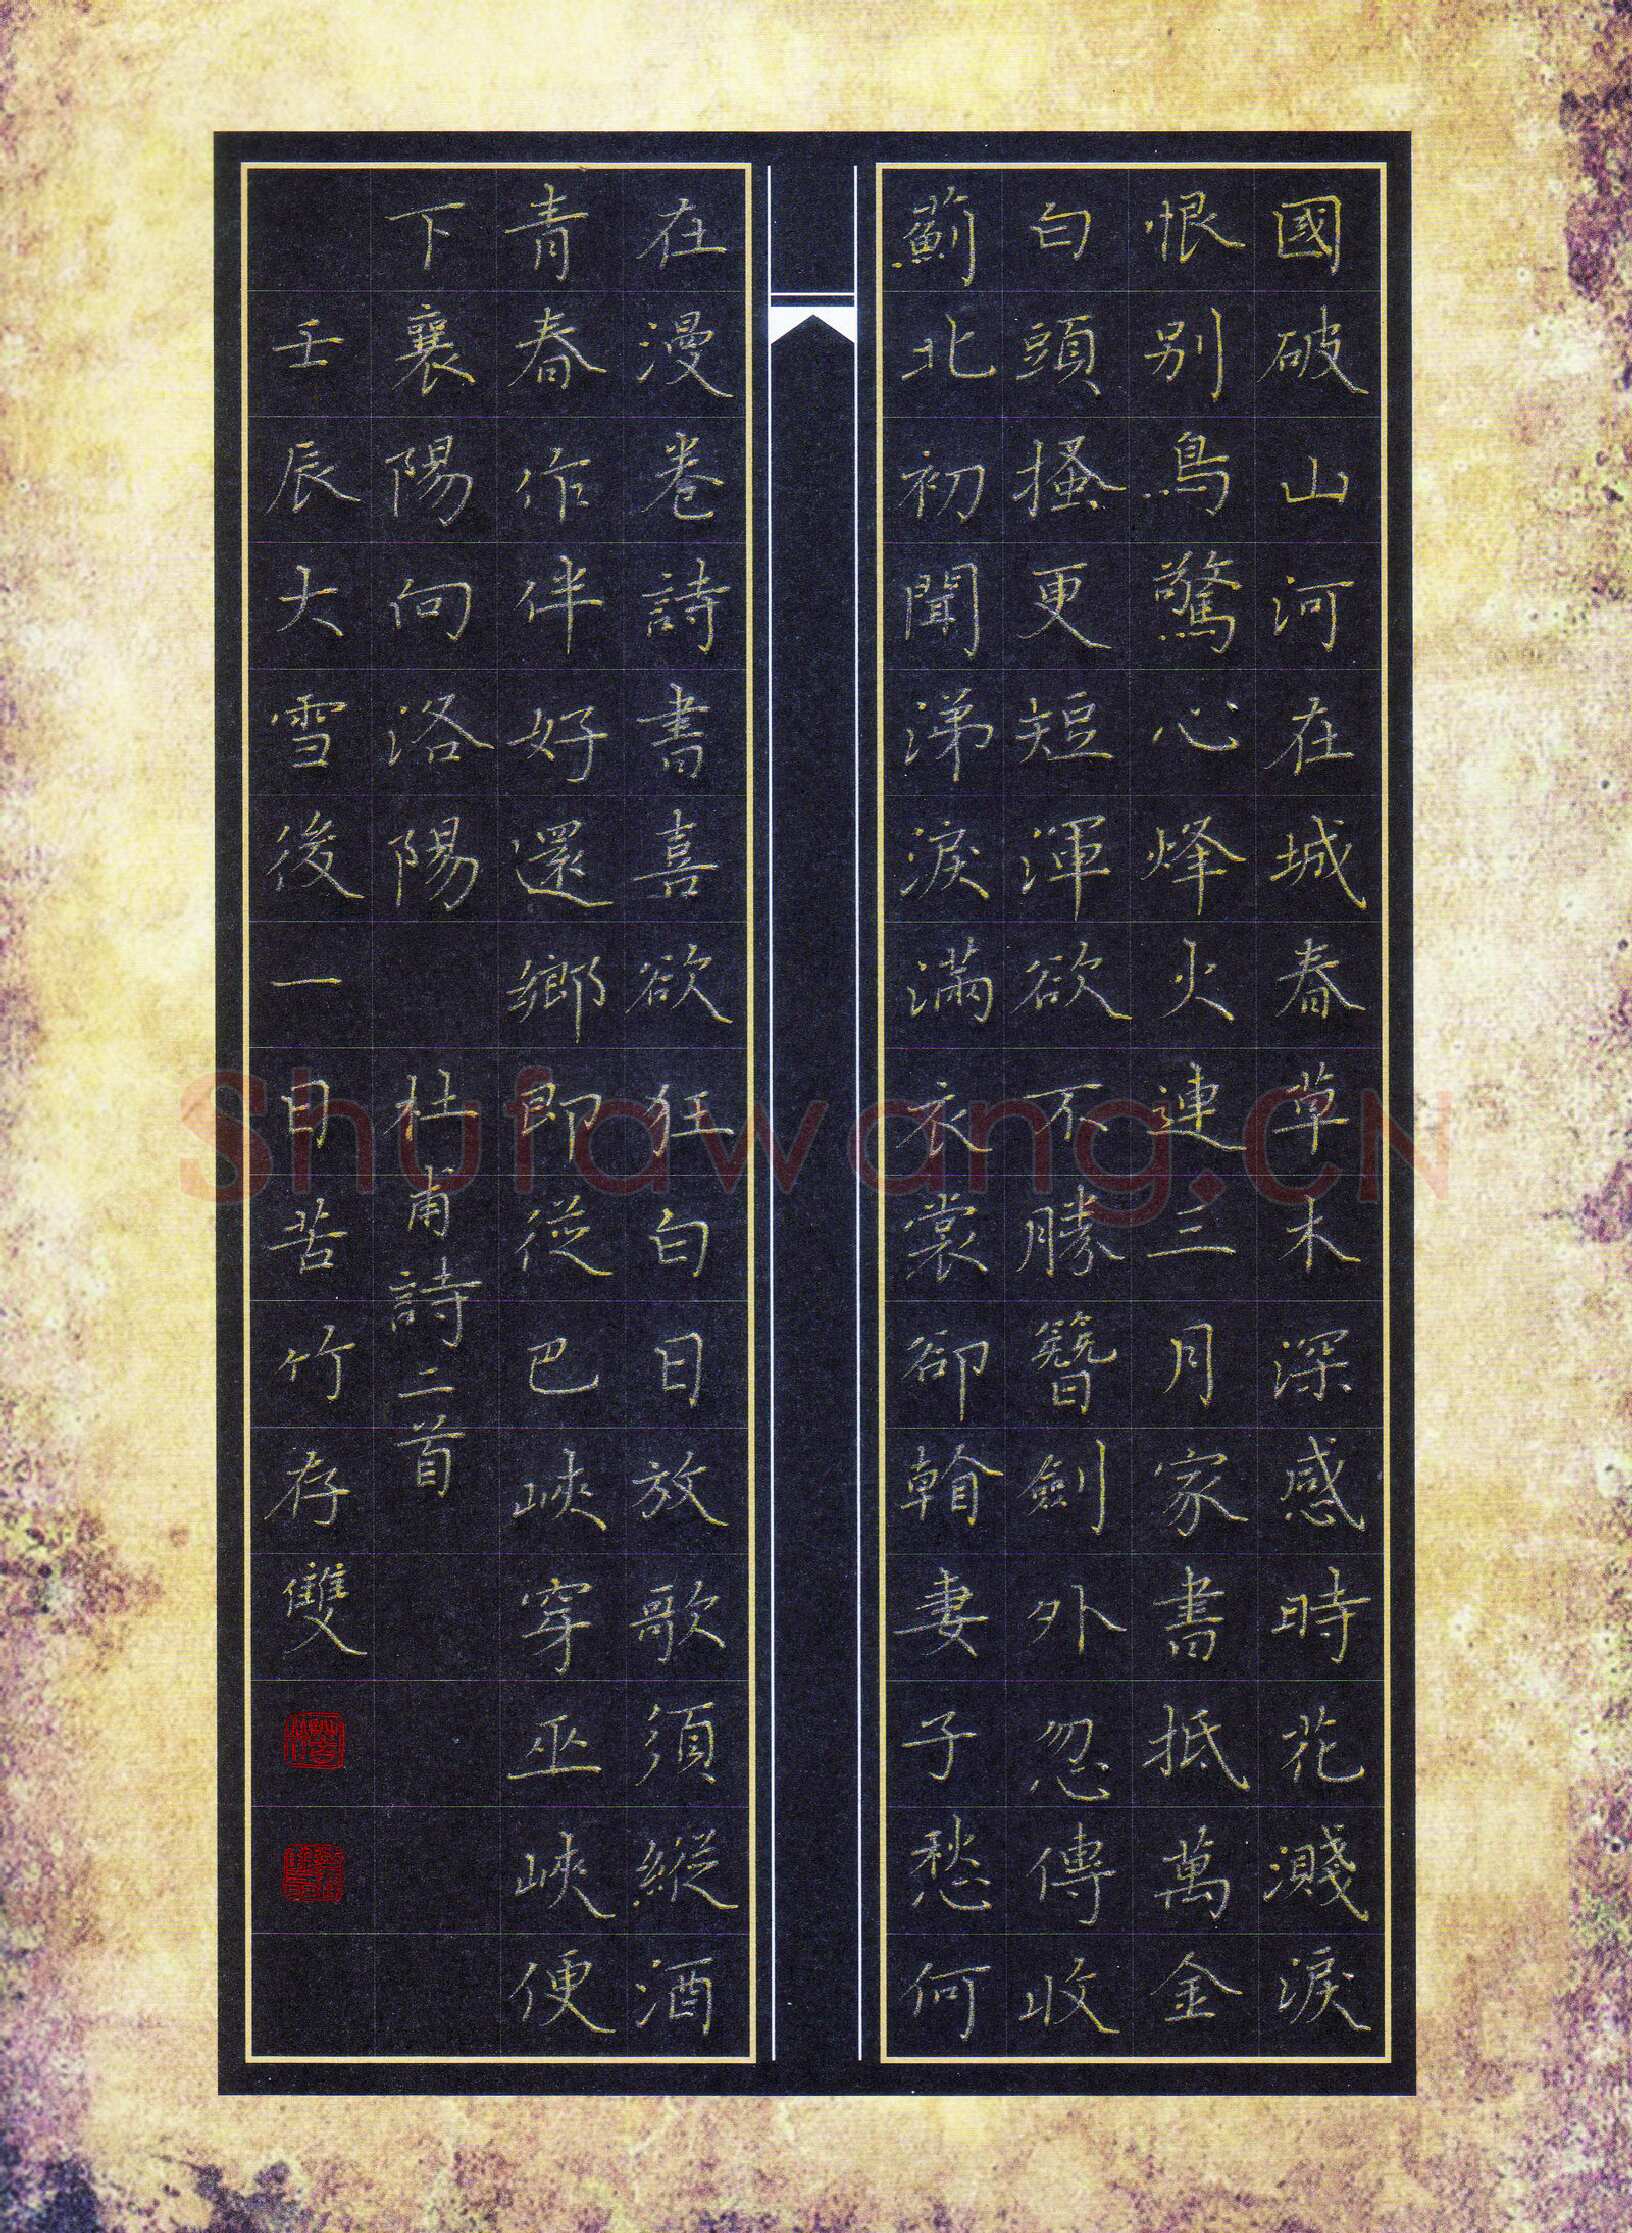 國破山河在城春草木深感時花濺淚
恨别鳥驚心烽火連三月家書抵萬金
白頭搔更短渾欲不勝簪劍外忽傳收
薊北初聞涕淚滿衣裳卻看妻子愁何
在漫卷詩書喜欲狂白日放歌須縱酒
青春作伴好還鄉即從巴峽穿巫峽便
下襄陽向洛陽 杜甫詩二首
壬辰大雪後一日苦竹存雙
Shufawang.CN